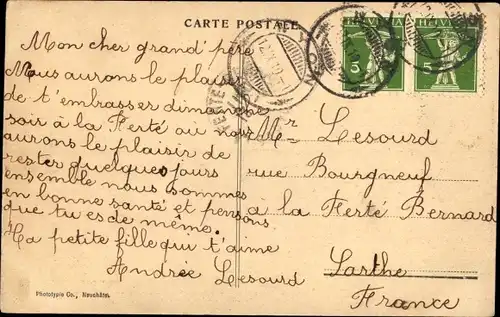 CARTE POSTALE
Mon cher grand père
Nous aurons le plaisir
de t'embrasser dimanche
soir à la Ferté où nous
aurons le plaisir de
rester quelques jours
ensemble nous sommes
en bonne santé et pensons
que tu es de même.
Ta petite fille qui t'aime
Andrée Lesourd
HELVETIA
5
HELVETIA
5
NYON
Mr Lesourd
rue Bourgneuf
à la Ferté Bernard
Sarthe
France
Phototypie Co., Neuchâtel